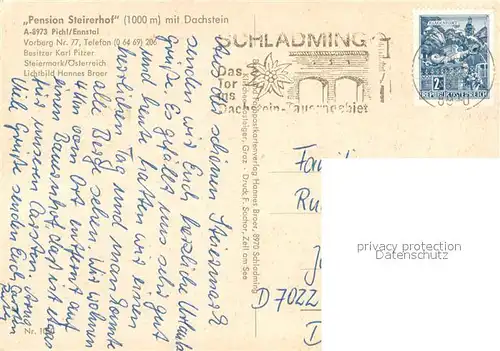 „Pension Steirerhof" (1000 m) mit Dachstein
A-8973 Pichl/Ennstal
Vorberg Nr. 77, Telefon (0 64 69) 206
Besitzer Karl Pitzer
Steiermark/Österreich
Lichtbild Hannes Broer
SCHLADMING
Das
Tor
ins
Dachstein-Tauerngebiet
2
REPUBLIK ÖSTERREICH
Aus der schönen Steiermark
senden wir Euch herzliche Urlaubs
grüße. Es gefällt uns sehr gut
und heute hatten wir einen
herrlichen Tag und man konnte
alle Berge sehen. Wir wohnen
4 km vom Ort entfernt auf
einem Bauernhof, das ist etwas
für unseren Carsten.
Viele Grüße senden Euch
Naturfarbenpostkartenverlag Hannes Broer, 8970 Schladming
Graz · Druck F. Sochor, Zell am See
Fami
D 7022
D
privacy protection
www.delcampe.net